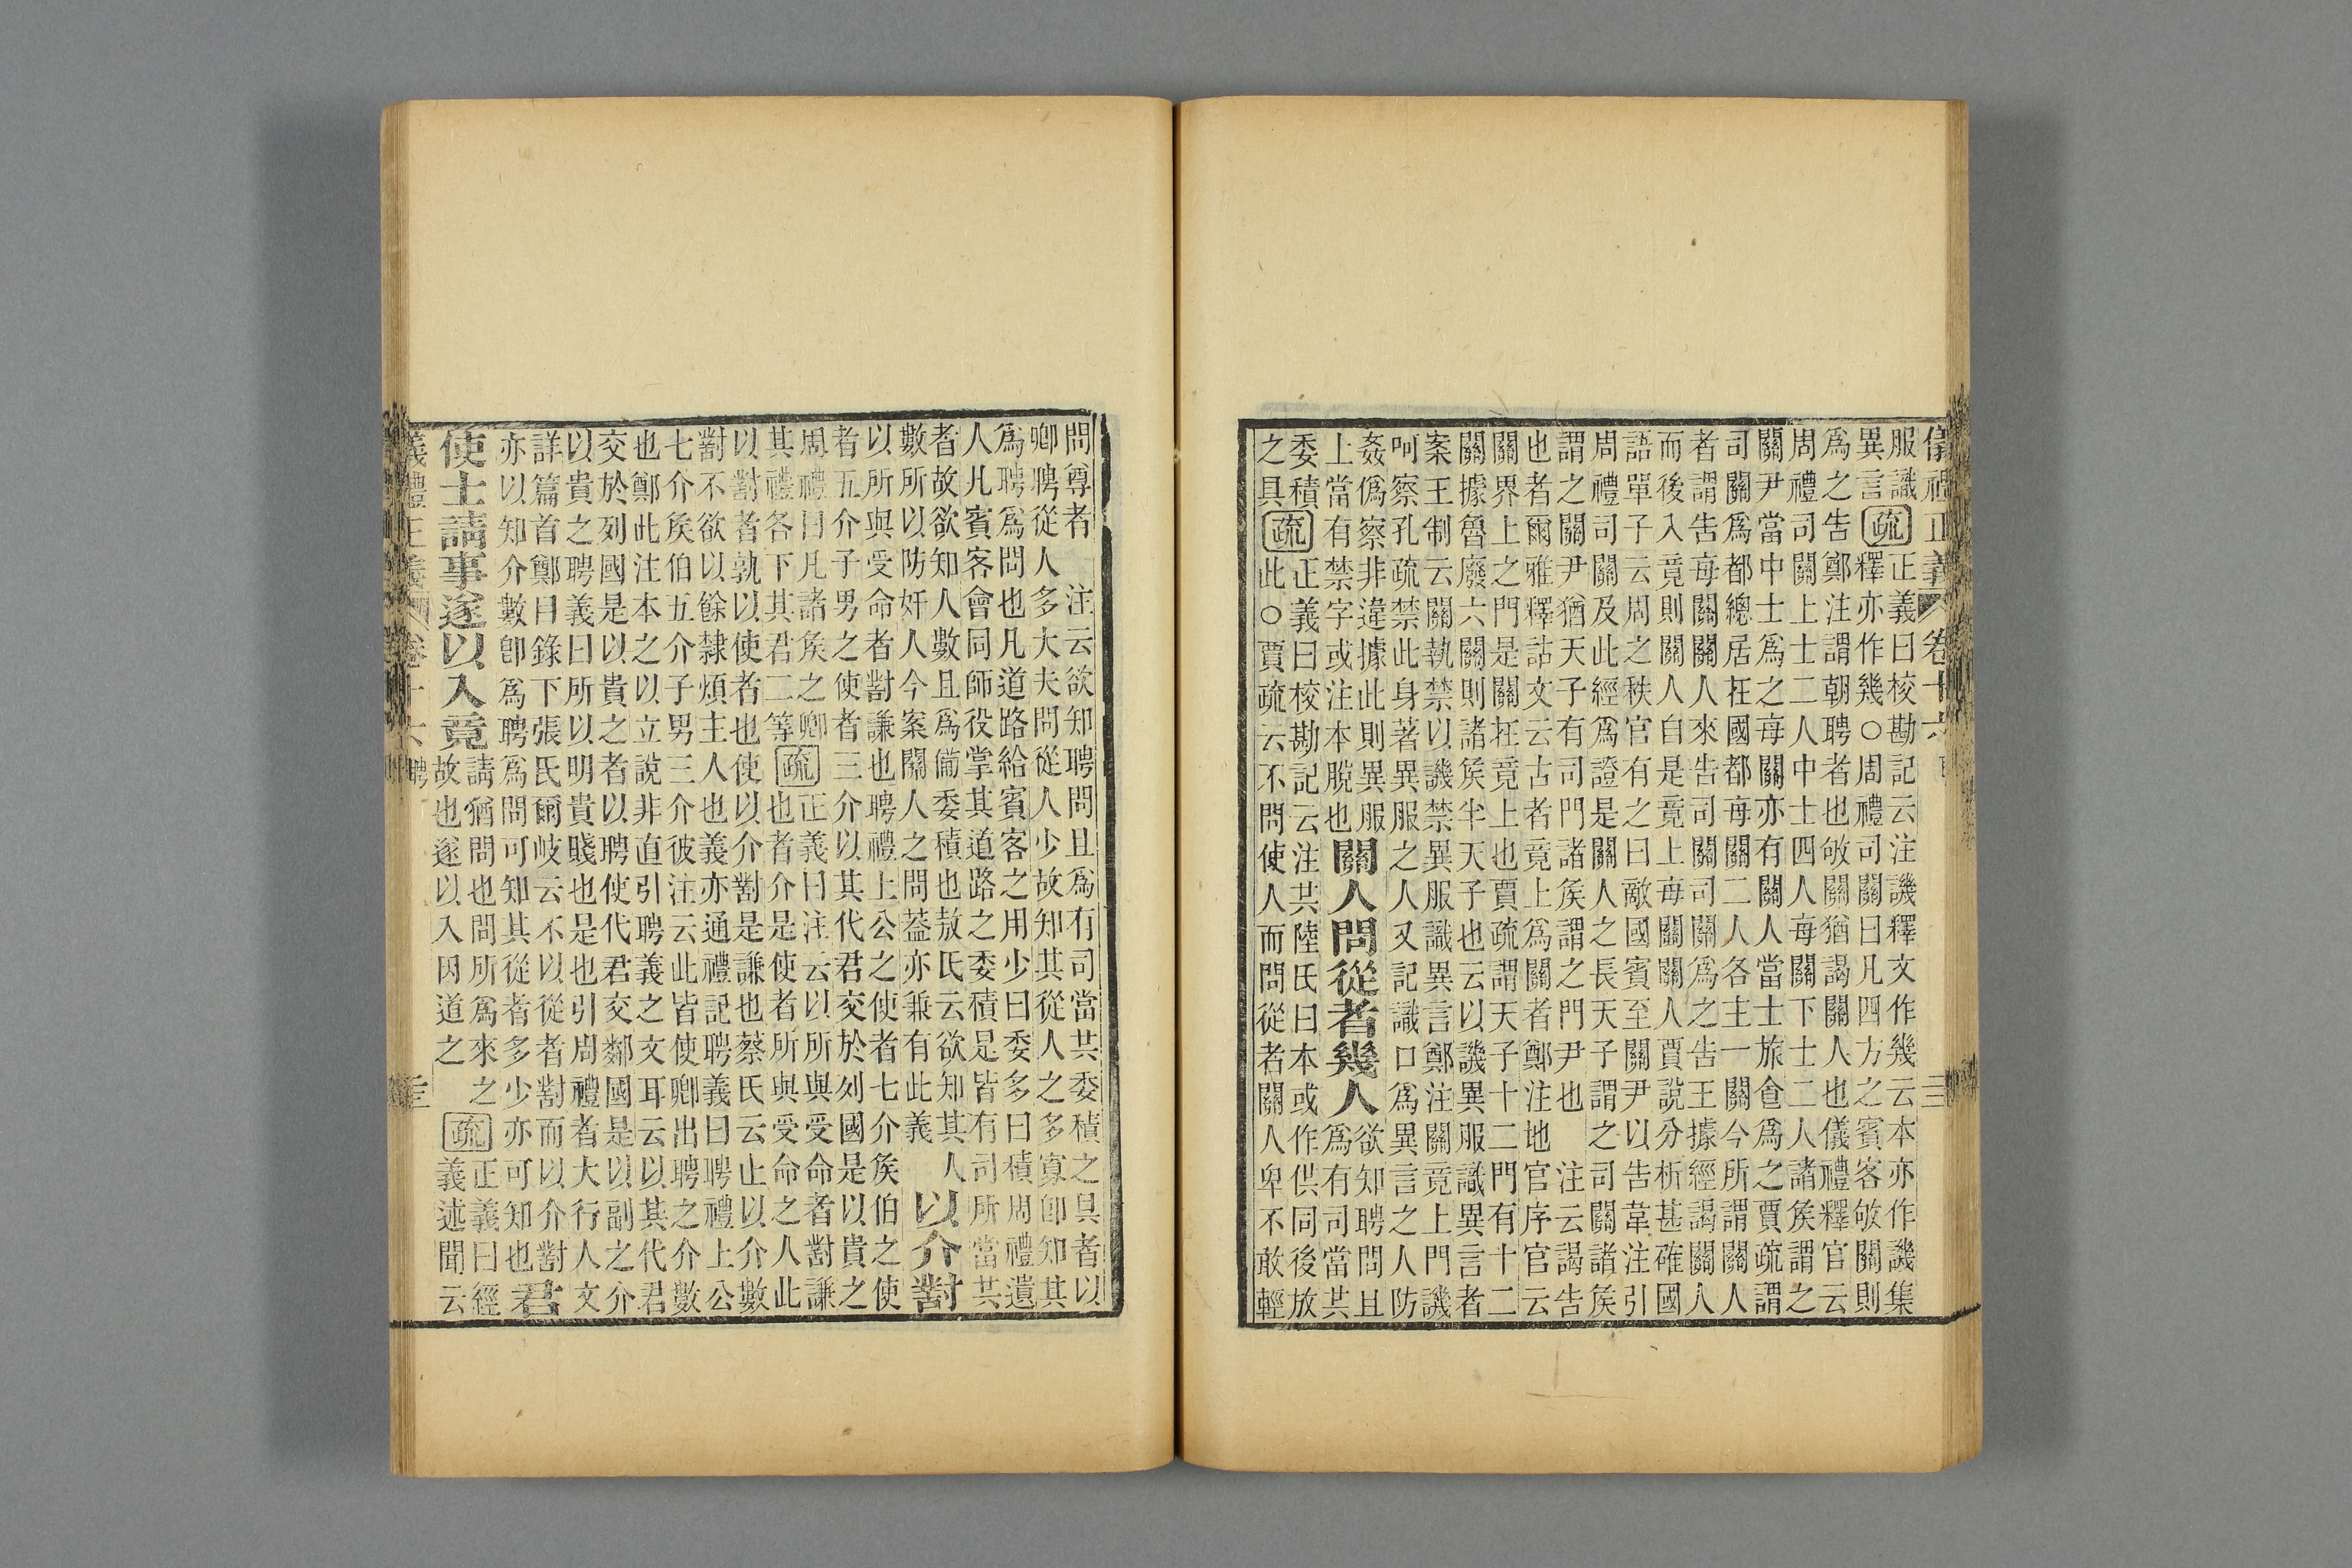 儀禮正義 卷十六
服識
異言
疏
正義曰校勘記云注譏釋文作幾云本亦作譏集
釋亦作幾○周禮司關曰凡四方之賓客敂關則
爲之告鄭注謂朝聘者也敂關猶謁關人也儀禮釋官云
周禮司關上士二人中士四人每關下士二人諸矦謂之
關尹當中士爲之每關亦有關人當士旅食爲之賈疏謂
司關爲都總居在國都每關二人各主一關今所謂關人
者謂告每關關人來告司關司關爲之告王據經謁關人
而後入竟則關人自是竟上每關關人賈說分析甚確國
語單子云周之秩官有之曰敵國賓至關尹以告韋注引
周禮司關及此經爲證是關人之長天子謂之司關諸矦
謂之關尹猶天子有司門諸矦謂之門尹也 注云謁告
也者爾雅釋詁文云古者竟上爲關者鄭注地官序官云
關界上之門是關在竟上也賈疏謂天子十二門有十二
關據魯廢六關則諸矦半天子也云以譏異服識異言者
案王制云關執禁以譏禁異服識異言鄭注關竟上門譏
呵察孔疏禁此身著異服之人又記識口爲異言之人防
姦僞察非違據此則異服
上當有禁字或注本脫也
關人問從者幾人
欲知聘問且
爲有司當共
委積
之具
疏
正義曰校勘記云注共陸氏曰本或作供同後放
此○賈疏云不問使人而問從者關人卑不敢輕
問尊者 注云欲知聘問且爲有司當共委積之具者以
卿聘從人多大夫問從人少故知其從人之多寡卽知其
爲聘爲問也凡道路給賓客之用少曰委多曰積周禮遺
人凡賓客會同師役掌其道路之委積是皆有司所當共
者故欲知人數且爲備委積也敖氏云欲知其人
數所以防奸人今案關人之問葢亦兼有此義
以介對
以所與受命者對謙也聘禮上公之使者七介矦伯之使
者五介子男之使者三介以其代君交於列國是以貴之
周禮曰凡諸矦之卿
其禮各下其君二等
疏
正義曰注云以所與受命者對謙
也者介是使者所與受命之人此
以對者孰以使者也使以介對是謙也蔡氏云止以介數
對不欲以餘隸煩主人也義亦通禮記聘義曰聘禮上公
七介矦伯五介子男三介彼注云此皆使卿出聘之介數
也鄭此注本之以立說非直引聘義之文耳云以其代君
交於列國是以貴之者以聘使代君交鄰國是以副之介
以貴之聘義曰所以明貴賤也是也引周禮者大行人文
詳篇首鄭目錄下張氏爾岐云不以從者對而以介對
亦以知介數卽爲聘爲問可知其從者多少亦可知也
君
使士請事遂以入竟
請猶問也問所爲來之
故也遂以入因道之
疏
正義曰經
義述聞云